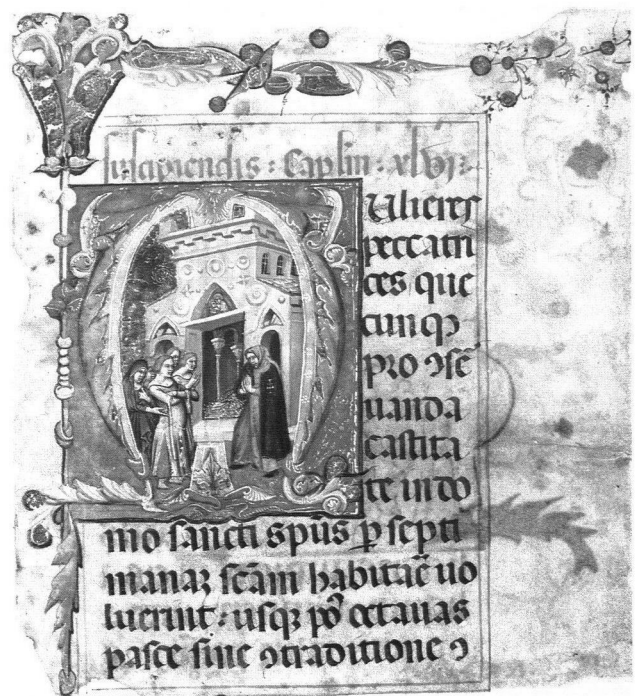 suscipiendis : Caplm : xlvj :
Mulieres
peccatri
ces que
cunqꝫ
pro ꝯsẽ
uanda
castita
te in do
mo sancti spũs ꝑ septi
manaꝫ scãm habitaẽ uo
luerint : usqꝫ po᷒ octauas
pasce sine ꝯtraditione ꝯ